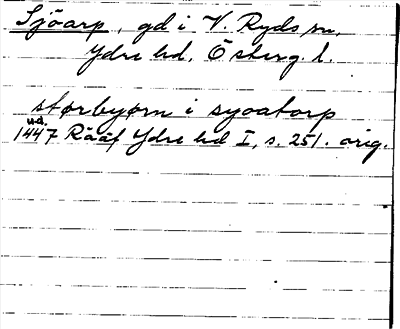 Sjöarp, gd i V. Ryds sn,
Ydre hd, Österg. l.
storbyorn i syoatorp
u.d.
1447 Rääf Ydre hd I, s. 251. orig.